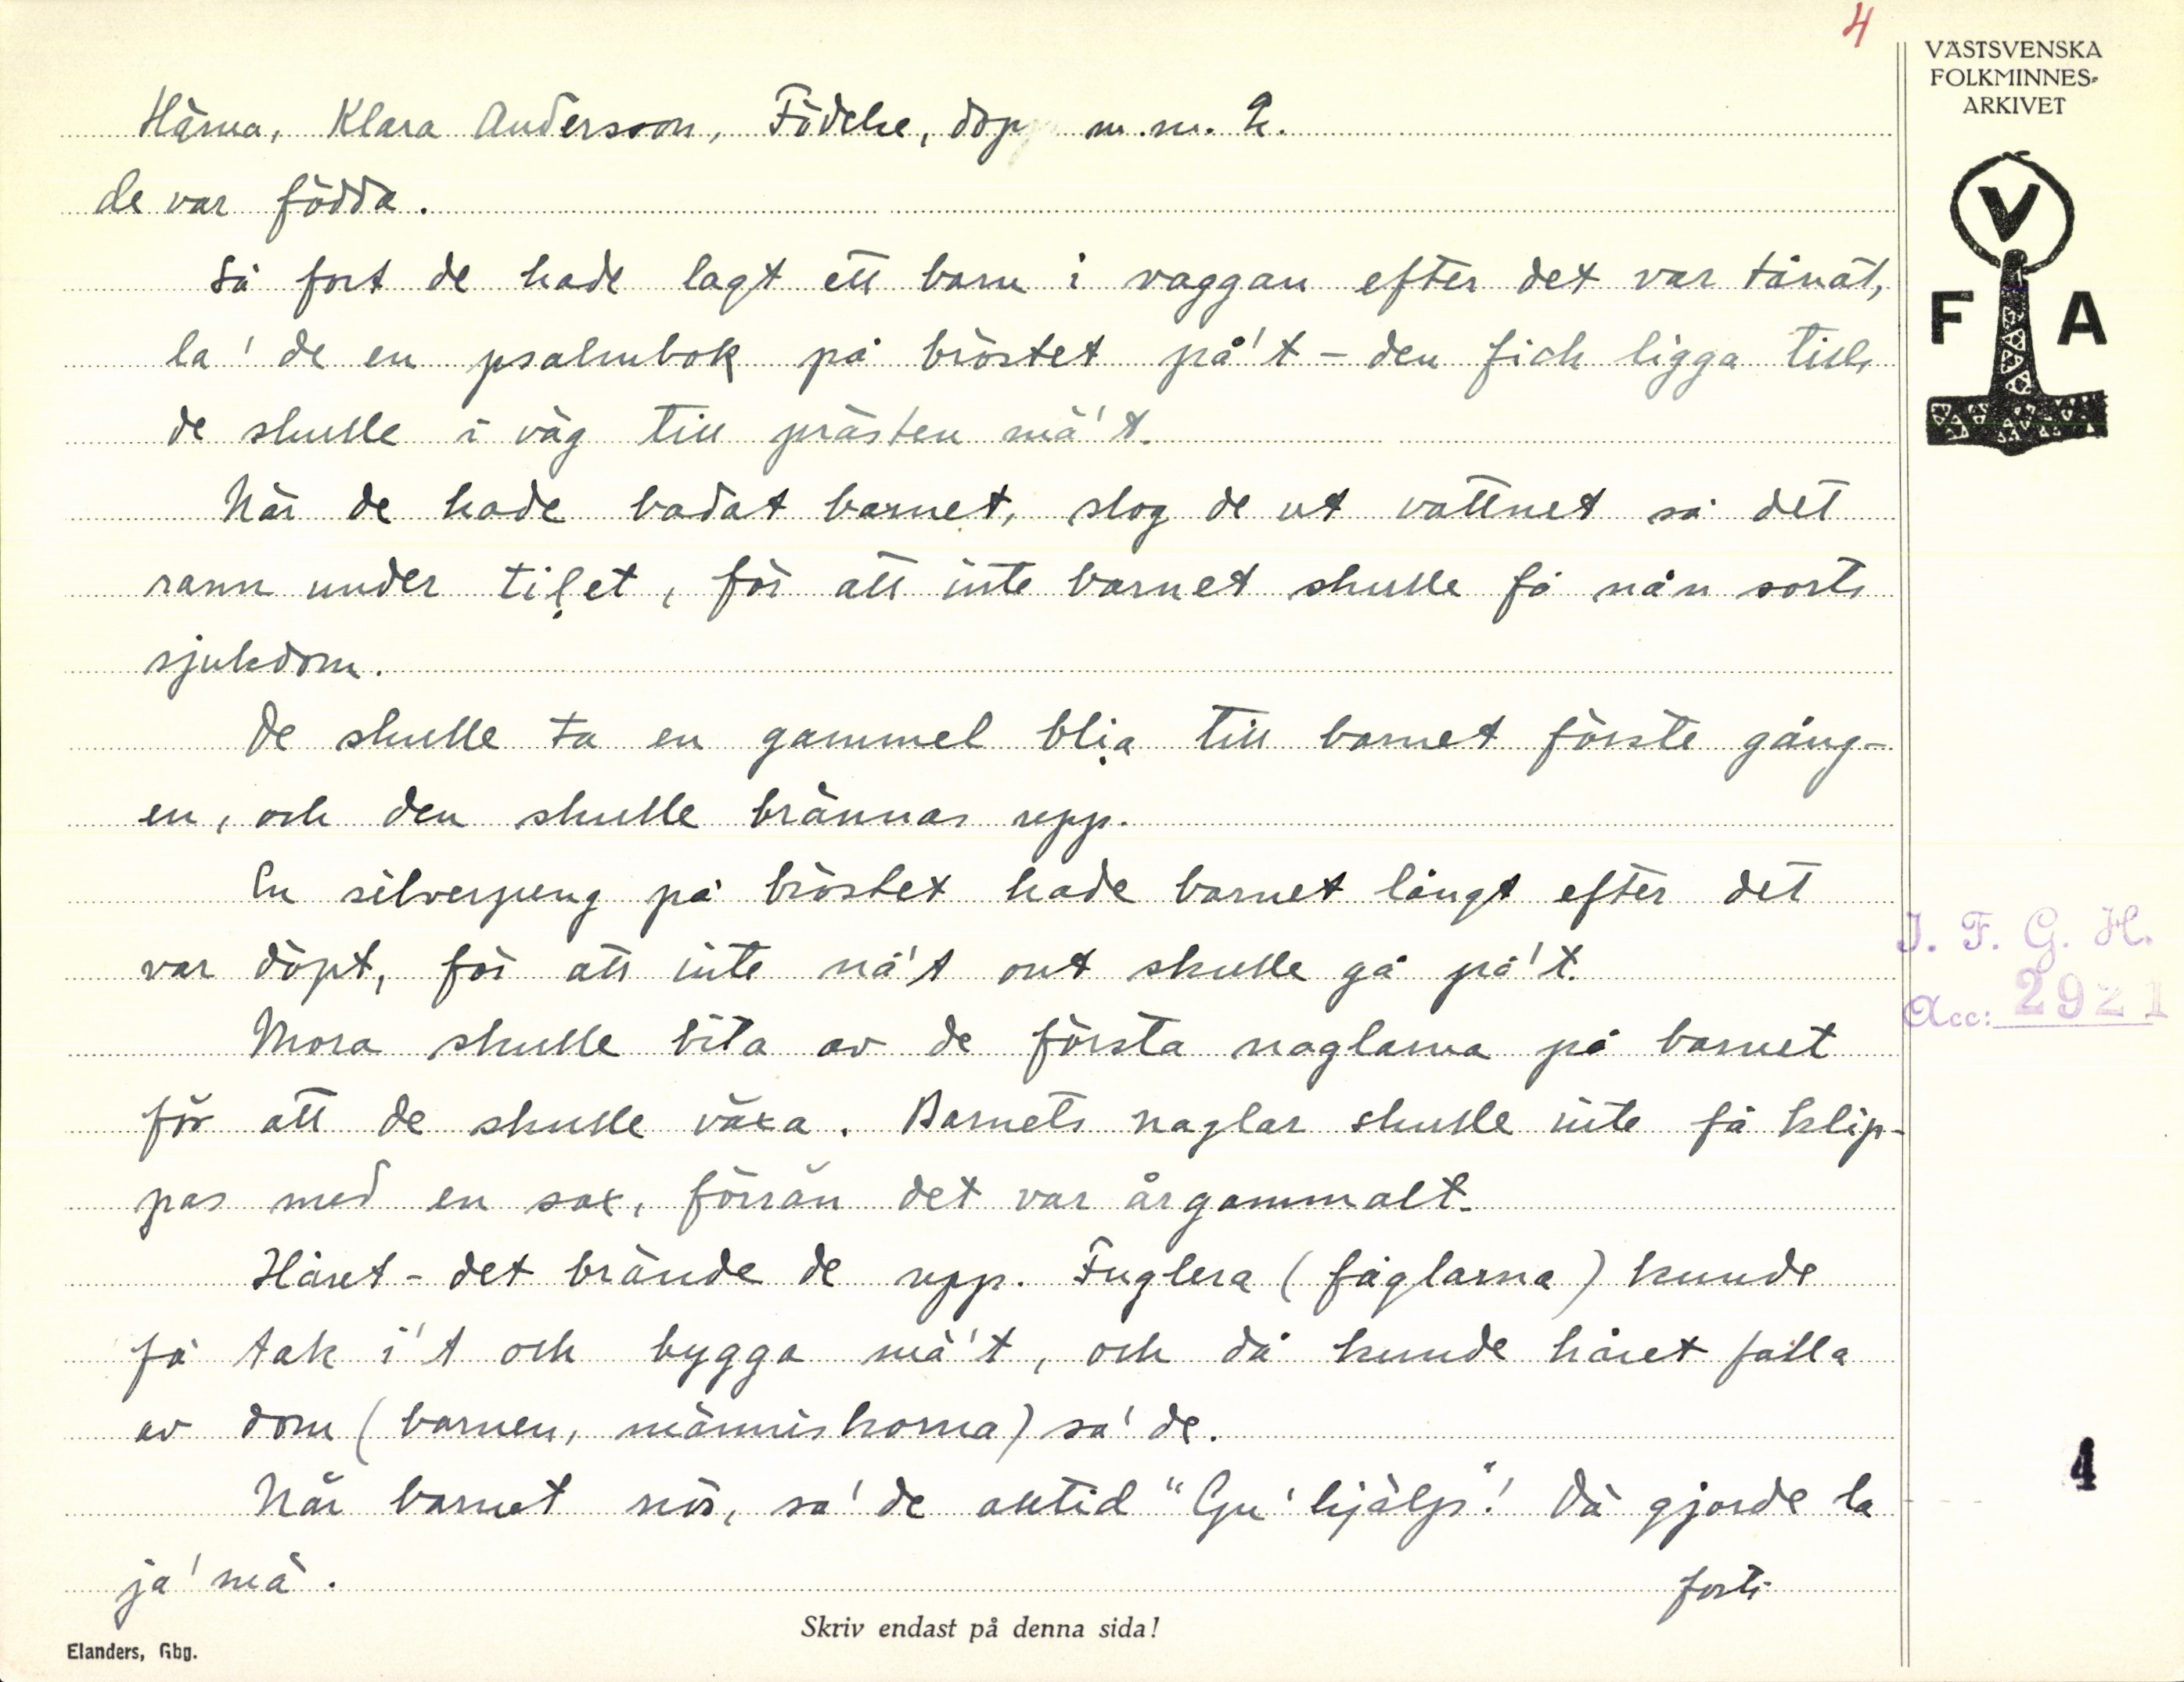 4
VÄSTSVENSKA
FOLKMINNES-
ARKIVET
V
F A
Härna, Klara Andersson, Födelse, dop m.m. 2.
de var födda.
Så fort de hade lagt ett barn i vaggan efter det var tånat,
la' de en psalmbok på bröstet på't – den fick ligga tills
de skulle i väg till prästen mä't.
När de hade badat barnet, slog de ut vattnet så det
rann under tilet, för att inte barnet skulle få nån sorts
sjukdom.
De skulle ta en gammel blia till barnet förste gång-
en, och den skulle brännas upp.
En silverpeng på bröstet hade barnet långt efter det
var döpt, för att inte nå't ont skulle gå på't.
Mora skulle bita av de första naglarna på barnet
för att de skulle växa. Barnets naglar skulle inte få klip-
pas med en sax, förrän det var årgammalt.
Håret – det brände de upp. Fuglera (fåglarna) kunde
få tak i't och bygga mä't, och då kunde håret falla
av dom (barnen, människorna) sa' de.
När barnet nös, sa' de alltid "Gu' hjälp"! Då gjorde la
ja' mä.
forts.
Skriv endast på denna sida!
Elanders, Gbg.
I. F. G. H.
Acc: 2921
4